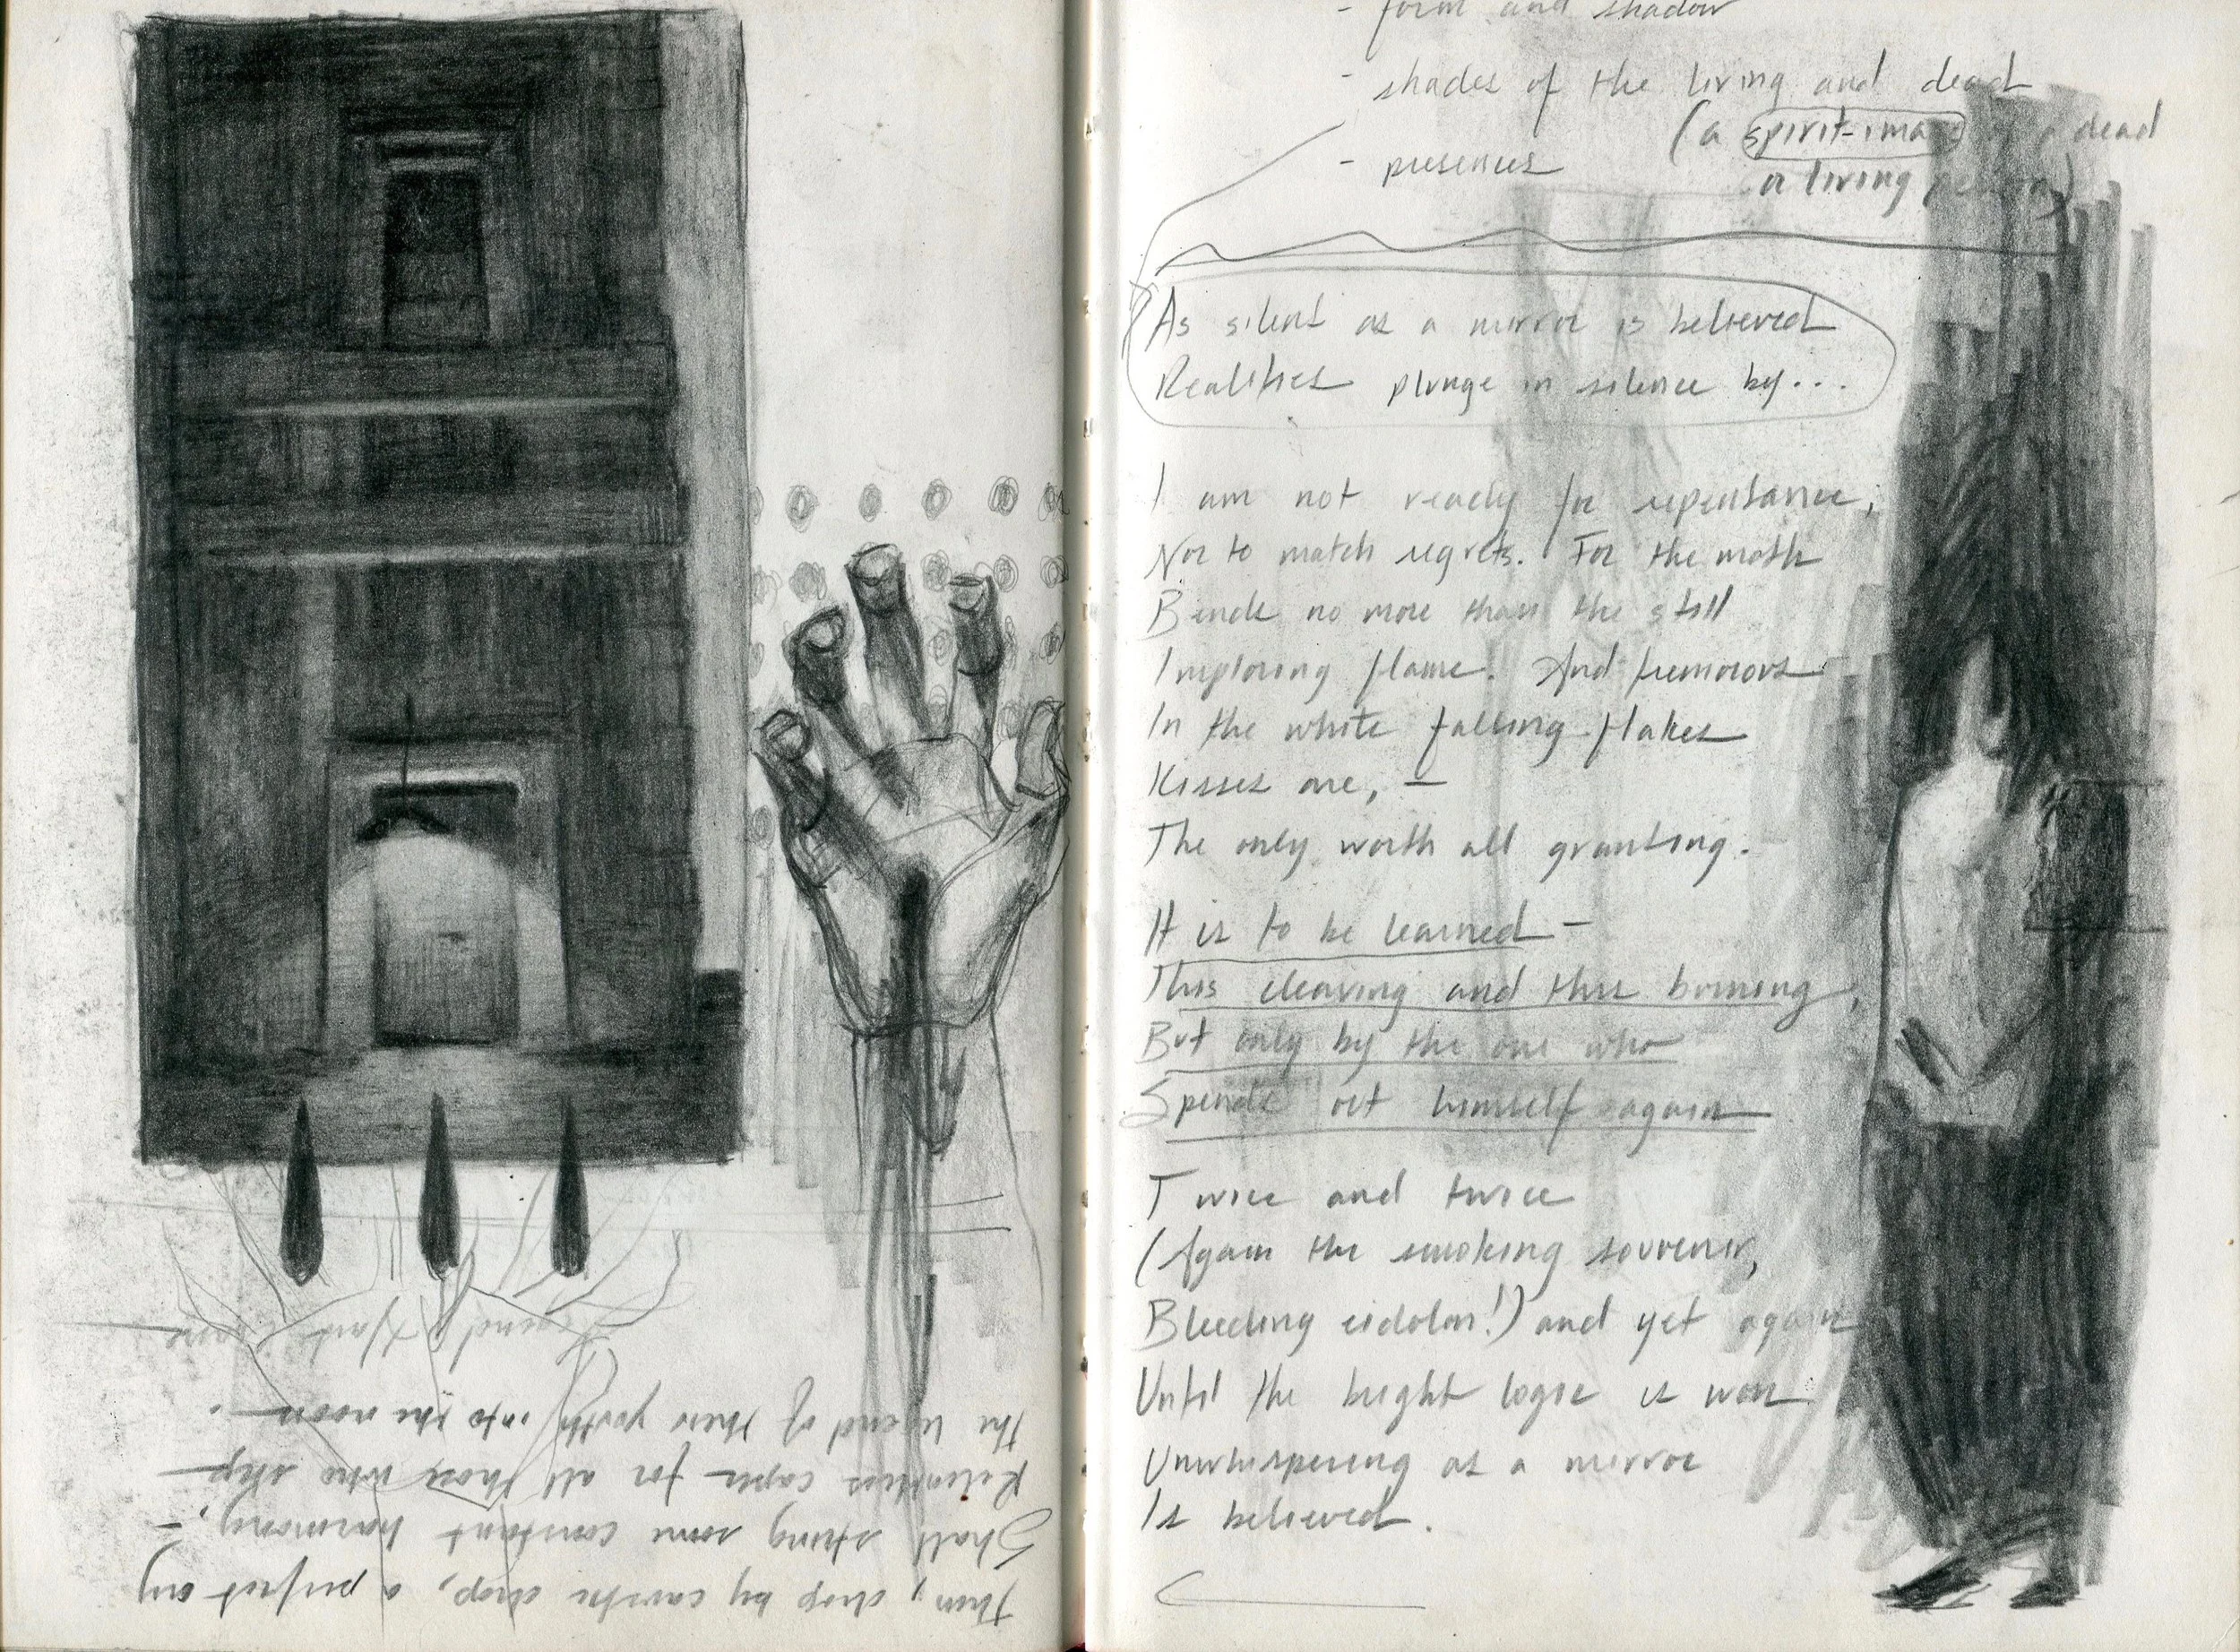 Then, drop by caustic drop, a perfect cry
Shall string some constant harmony, —
Relentless caper for all those who step
The legend of their youth into the noon.
Legend / Hart Crane
- form and shadow
- shades of the living and dead
(a spirit-image of a dead
or living person)
- presences
As silent as a mirror is believed
Realities plunge in silence by...
I am not ready for repentance;
Nor to match regrets. For the moth
Bends no more than the still
Imploring flame. And tremorous
In the white falling flakes
Kisses are, —
The only worth all granting.
It is to be learned —
This cleaving and this burning,
But only by the one who
Spends out himself again
Twice and twice
(Again the smoking souvenir,
Bleeding eidolon!) and yet again
Until the bright logic is won
Unwhispering as a mirror
Is believed.